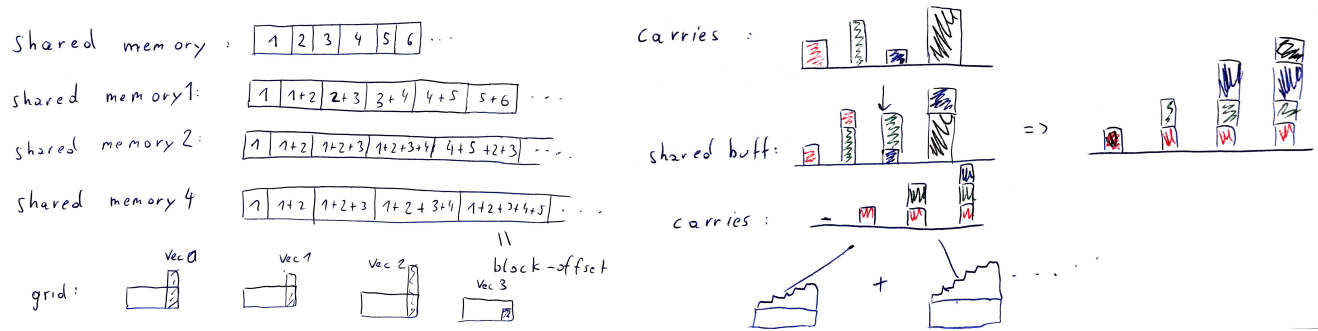 shared memory : 1 2 3 4 5 6 ...
shared memory1: 1 1+2 2+3 3+4 4+5 5+6 ....
shared memory 2: 1 1+2 1+2+3 1+2+3+4 4+5+2+3 ....
shared memory 4 1 1+2 1+2+3 1+2+3+4 1+2+3+4+5 ....
=
block-offset
grid: Vec 0 Vec 1 Vec 2 Vec 3
carries :
shared buff: =>
carries : -
+ ......